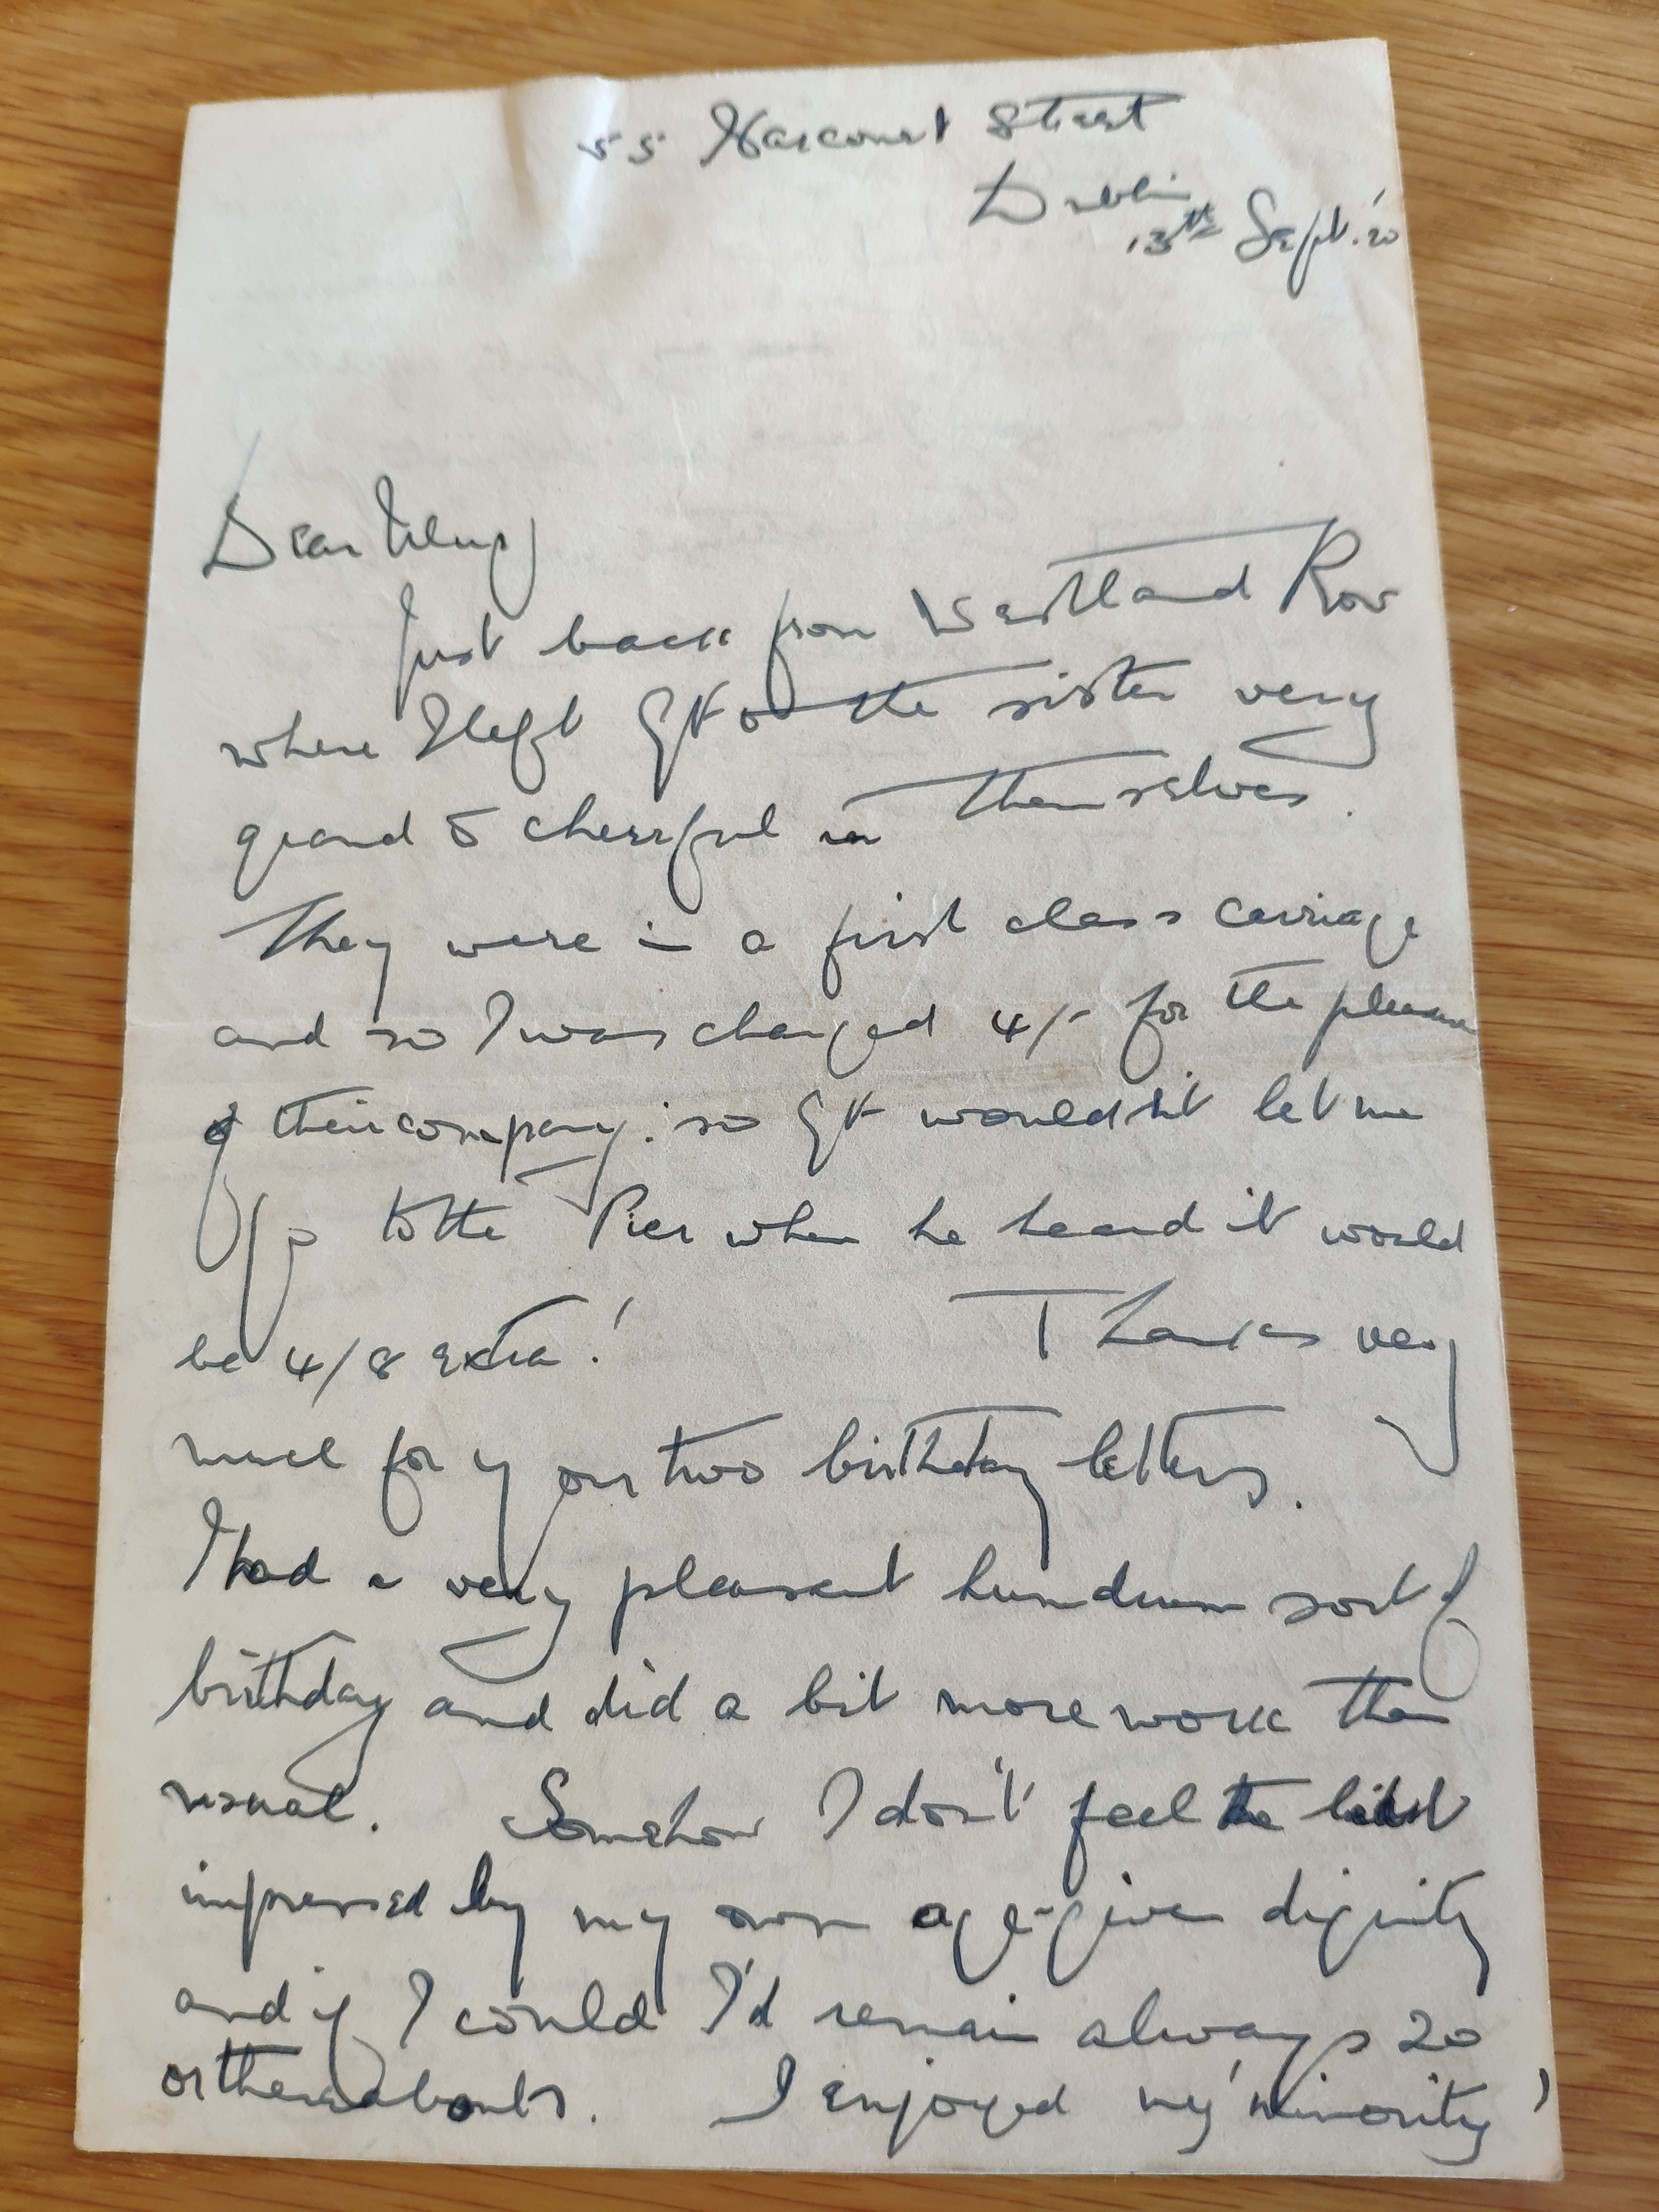 55 Harcourt Street
Dublin
13th Sept. '20
Dear
Just back from Westland Row
where I left & the sister very
grand & cheerful in themselves.
They were in a first class carriage
and so I was charged 4/- for the pleasure
of their company: so wouldn't let me
go to the Pier when he heard it would
be 4/8 extra! Thanks very
much for your two birthday letters.
I had a very pleasant humdrum sort of
birthday and did a bit more work than
usual. Somehow I don't feel the least
impressed by my own age-given dignity
and if I could I'd remain always 20
or thereabouts. I enjoyed my 'minority'